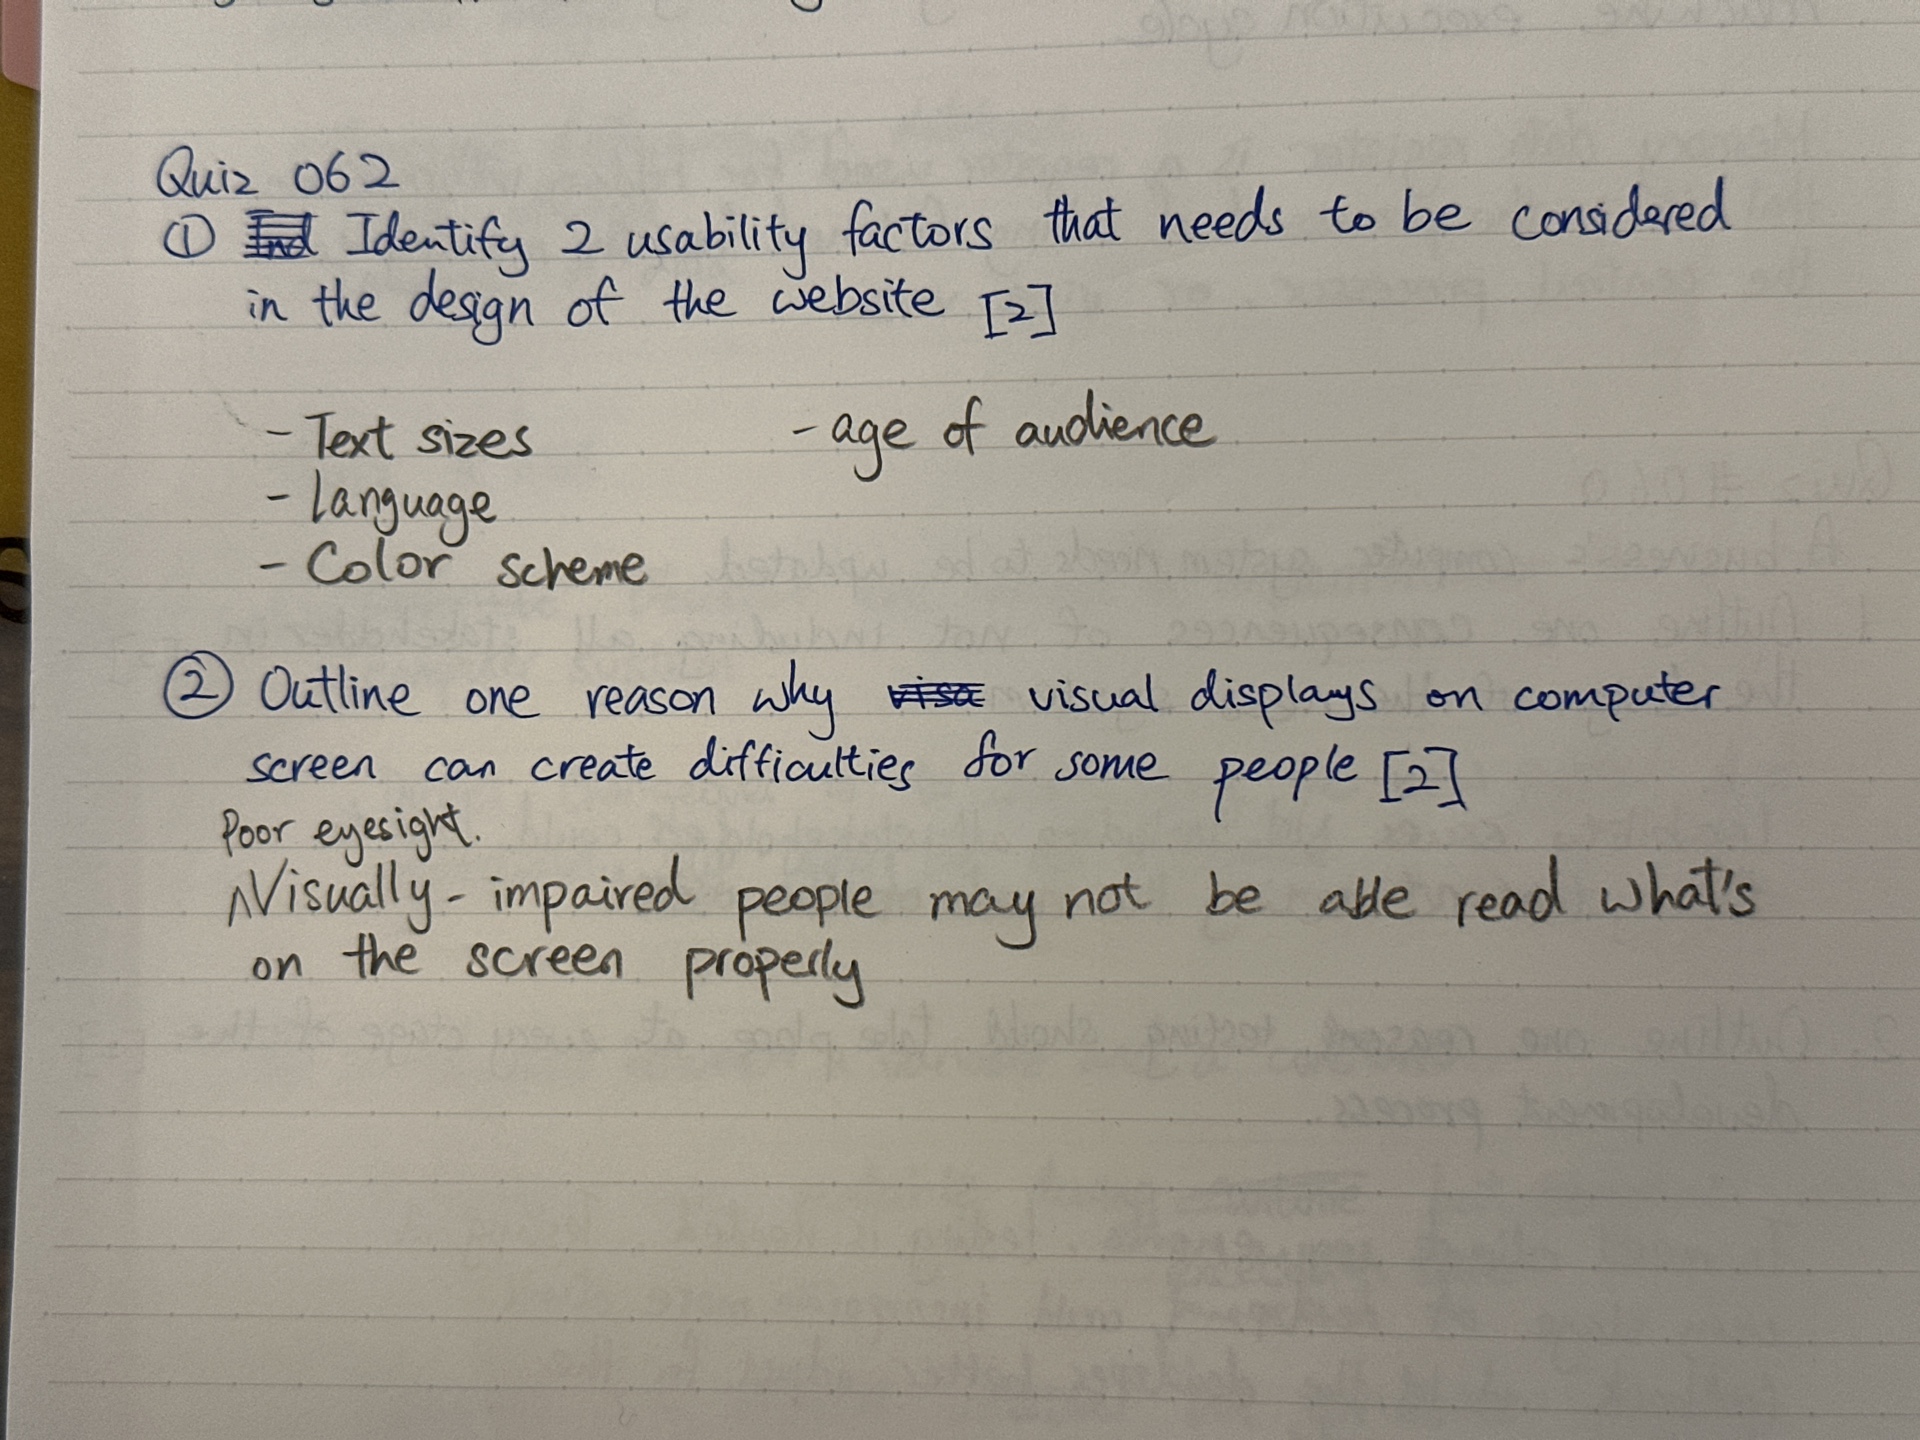 Quiz 062
① Identify 2 usability factors that needs to be considered
in the design of the website [2]
- Text sizes - age of audience
- Language
- Color scheme
② Outline one reason why visual displays on computer
screen can create difficulties for some people [2]
Poor eyesight.
Visually-impaired people may not be able read what's
on the screen properly